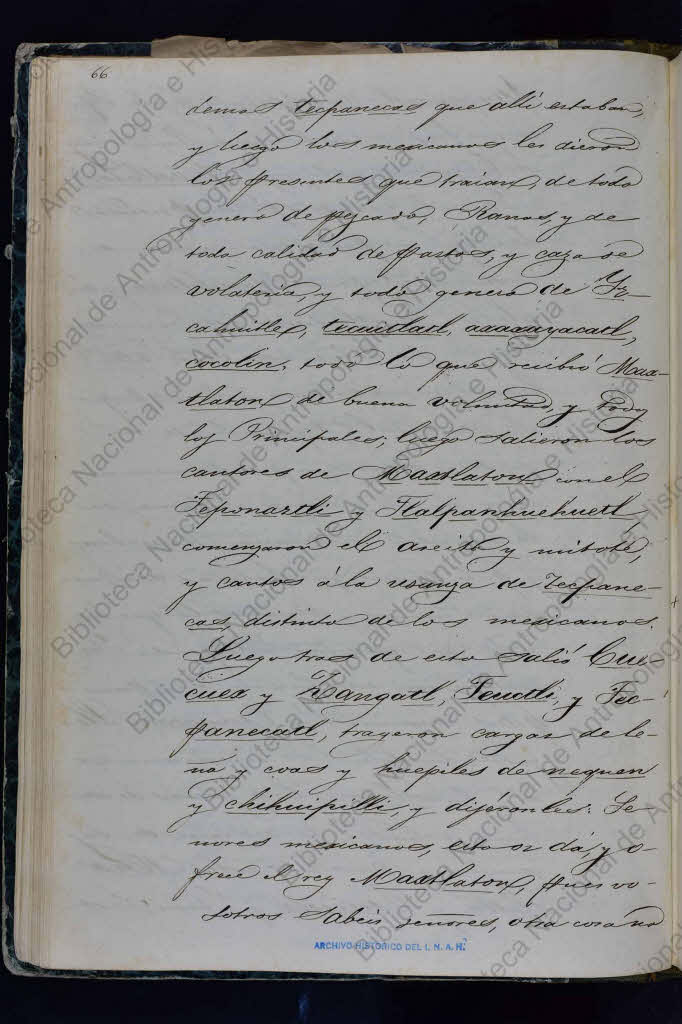 66
demas tecpanecas que allí estaban,
y luego los mexicanos les dieron
los presentes que traian, de todo
genero de pezcado, Ranas, y de
toda calidad de pastos, y caza de
volateria, y todo genero de Yz-
cahuitle, tecuitlatl, axaxayacatl,
cocolin, todo lo que recibió Max-
tlaton de buena voluntad, y
los Principales; luego salieron los
cantores de Maxtlaton con el
Teponaztli y Tlalpanhuehuetl,
comenzaron el areito y mitote,
y cantos á la usanza de Tecpane-
cas, distinto de los mexicanos.
Luego tras de esto salió Cue-
cuex y Zangatl, Teuctli, y Tec-
panecatl, trayeron cargas de le-
ña y coas y huepiles de nequen
y chihuipilli, y dijéronles: Se-
ñores mexicanos, esto os dá, y o-
frece el rey Maxtlaton, pues vo-
sotros sabeis señores, otra cosa no
ARCHIVO HISTORICO DEL I. N. A. H.
Biblioteca Nacional de Antropología e Historia